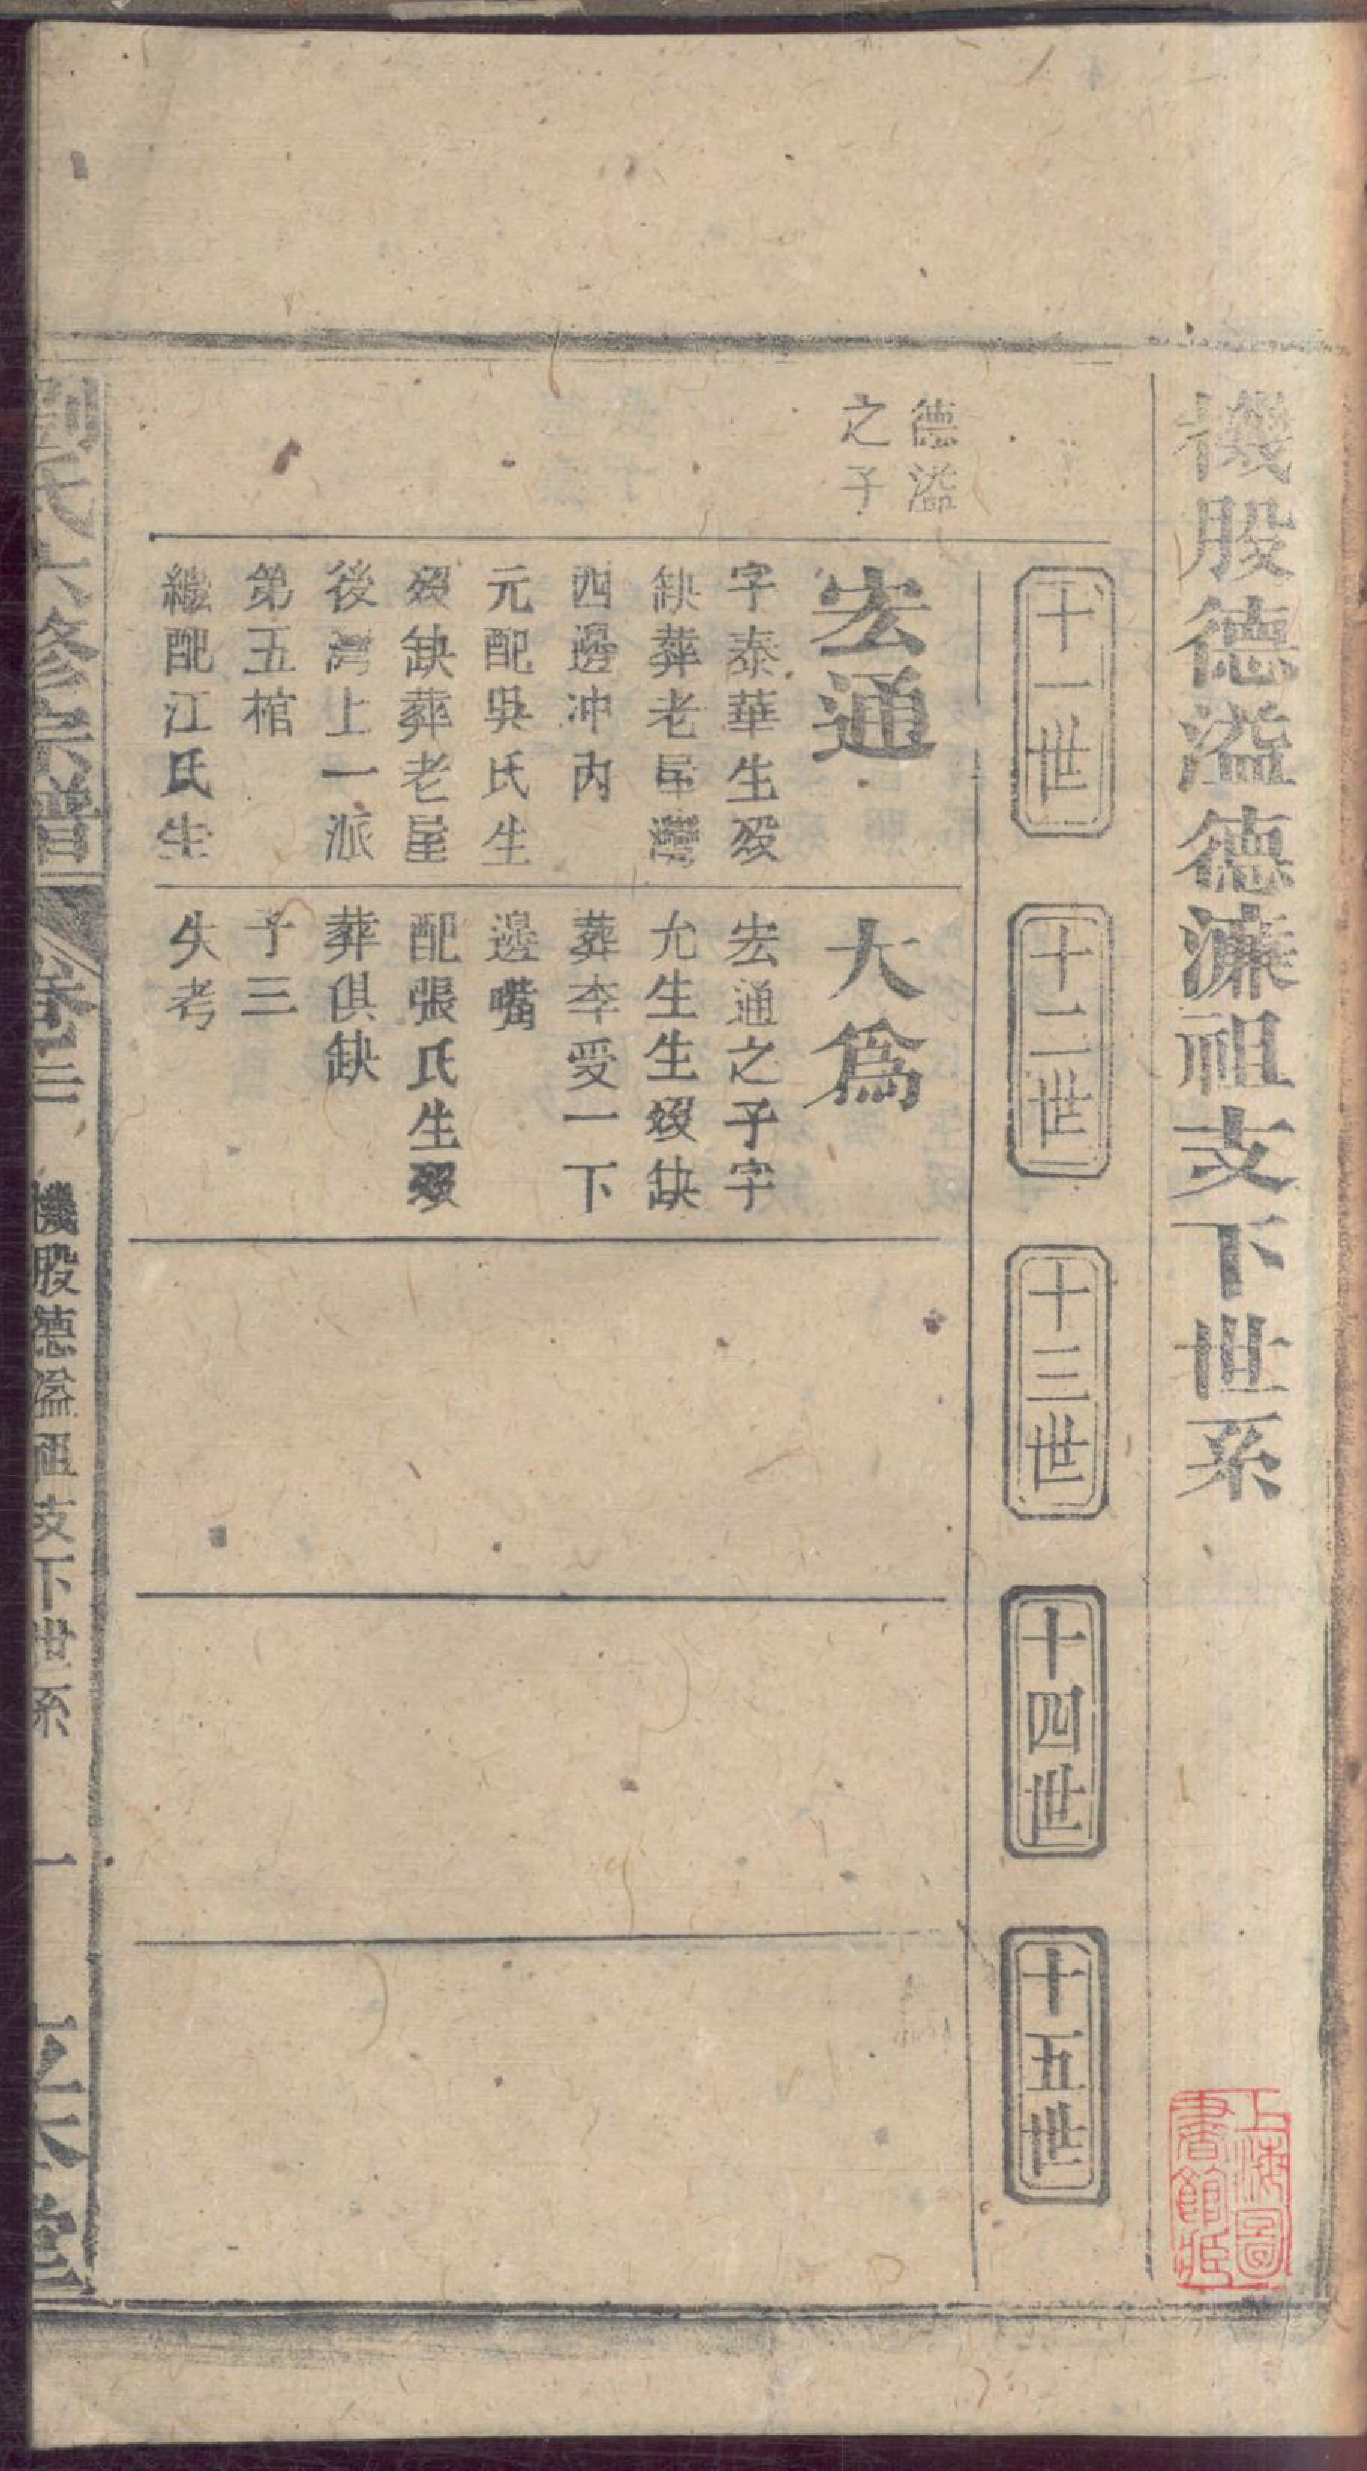 機股德溢德濂祖支下世系
十一世
十二世
十三世
十四世
十五世
德溢
之子
宏通
字泰華生歿
缺葬老屋灣
西邊冲內
元配吳氏生
歿缺葬老屋
後灣上一派
第五棺
繼配江氏生
大爲
宏通之子字
允生生歿缺
葬李受一下
邊嘴
配張氏生歿
葬俱缺
子三
失考
劉氏六修宗譜
卷三
機股德溢祖支下世系
一
堂
上海圖
書館藏